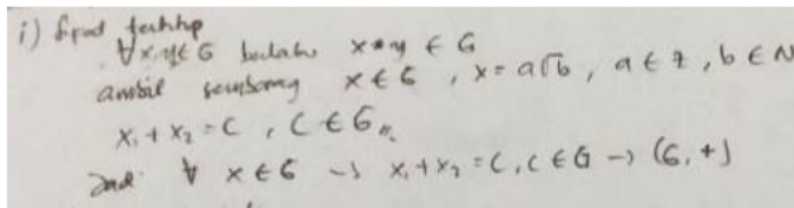 i) Sifat tertutup
∀x,y∈G berlaku x*y ∈ G
ambil sembarang x∈G , x=a√b , a∈Z , b∈N
x₁+x₂=C , C∈G //
Jadi ∀ x∈G → x₁+x₂=C, C∈G → (G,+)